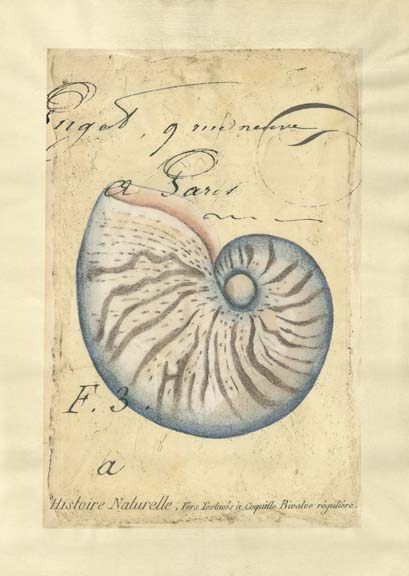 Puget, 9 rue neuve
a Paris
F. 3.
a
Histoire Naturelle, Vers Testacés à Coquille Bivalve régulière.